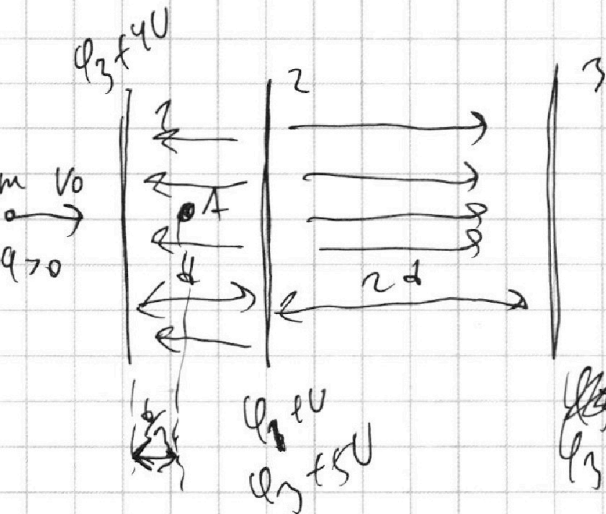 φ₃+4U
1
2
3
m V₀
A
q>0
d
2d
d/3
φ₁+U
φ₃+5U
φ₃